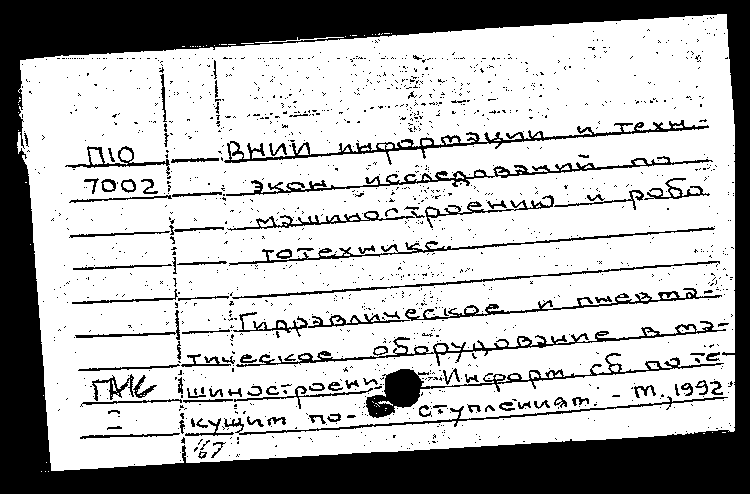 П10 ВНИИ информации и техн.-
7002 экон. исследований по
машиностроению и робо
тотехнике.
Гидравлическое и пневма-
тическое оборудование в ма-
шиностроении Информ. сб. по те-
кущим по- ступлениям. - М., 1992
'67